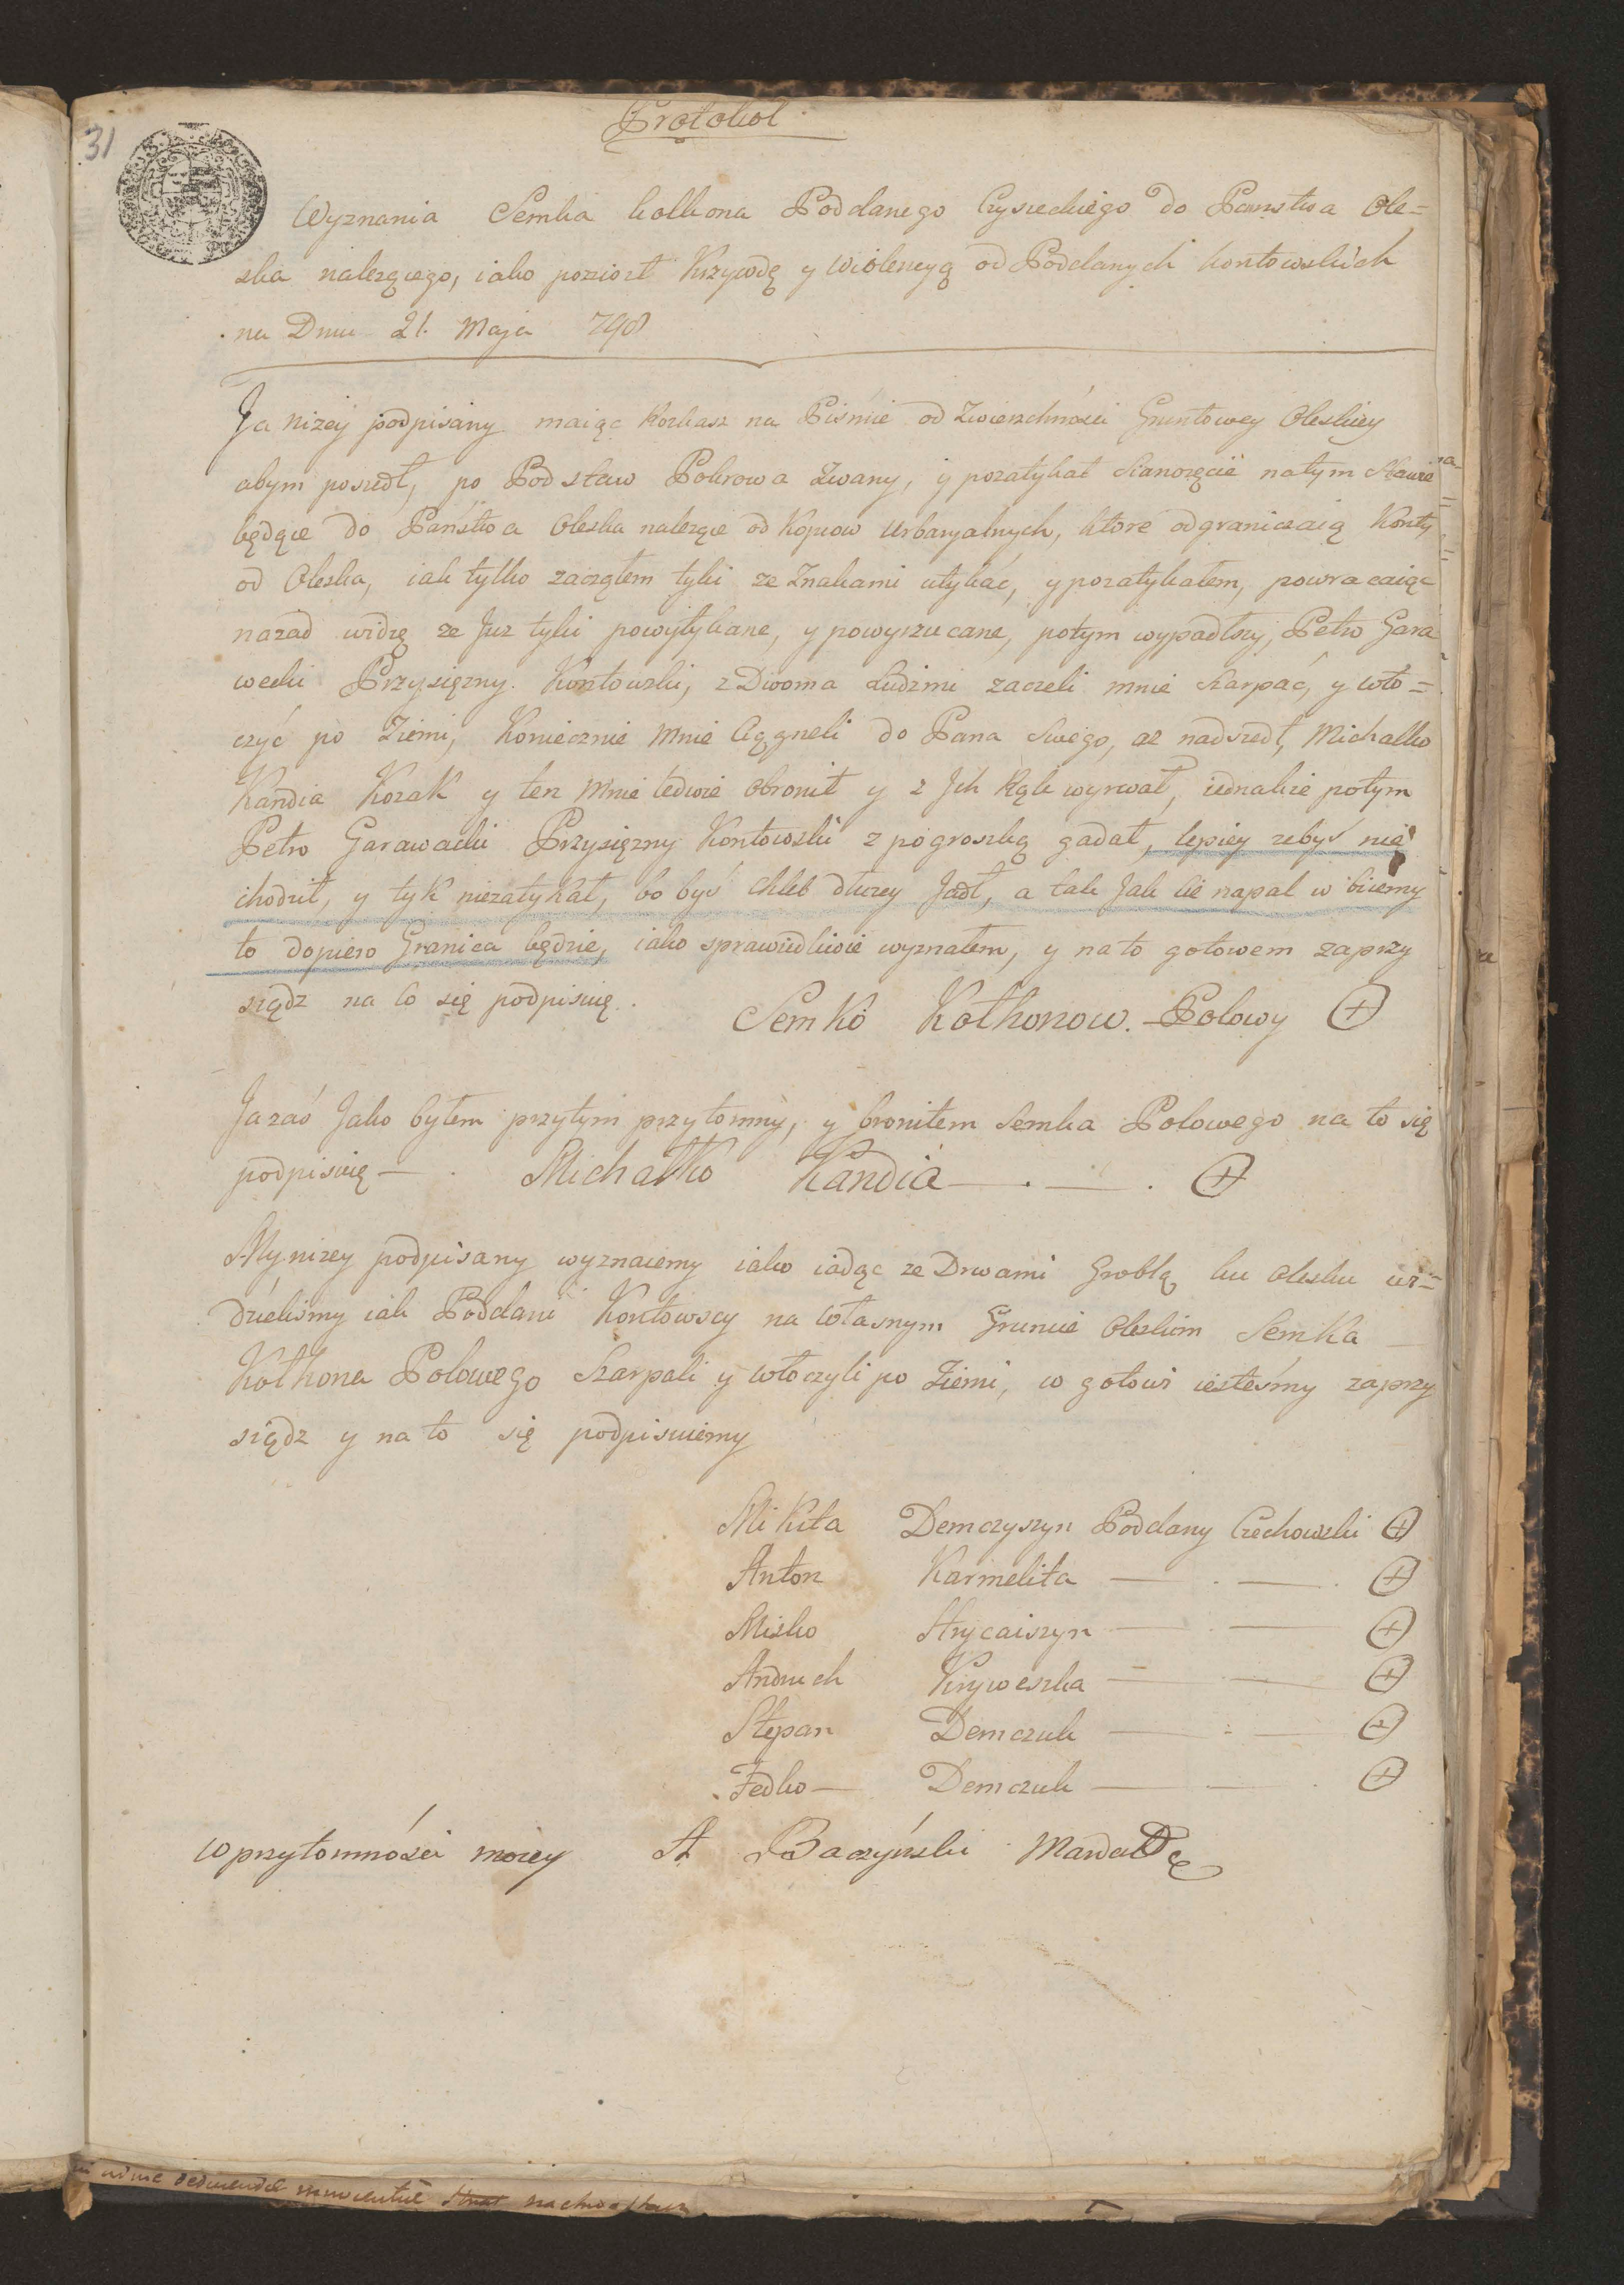 31
Protokol
Wyznania Semka Kolkona Poddanego Czysieckiego do Panstwa Ole=
ska nalezącego, iako poniosł Krzywdę y Wiolencyą od Poddanych Kontowskich
na Dniu 21. Maja 798
Ja niżey podpisany maiąc Rozkaz na Piśmie od Zwierzchności Gruntowey Oleskiey
abym poszedł, po Pod staw Pokrowa Zwany, y pozatykał Sianozęcie na tym Stawie
będące do Państwa Oleska nalezące od Kopcow Urbaryalnych, ktore odgraniczaią Konty
od Oleska, iak tylko zacząłem tyki ze Znakami utykać, y pozatykałem, powracaiąc
nazad widzę ze Juz tyki powytykane, y powyrzucane, potym wypadłszy, Petro Gara
wecki Przysięzny Kontowski, z Dwoma Ludzmi zaczeli mnie Szarpać, y wło=
czyć po Ziemi, Koniecznie Mnie Ciągneli do Pana Swego, az nadszedł, Michałko
Kandia Kozak y ten Mnie ledwie obronił y z Jch Rąk wyrwał, iednakze potym
Petro Garawacki Przysięzny Kontowski z pogroszką gadał, lepiey zebyś nie
chodził, y tyk niezatykał, bo byś chleb dłuzey Jadł, a tak Jak cie napal w biiemy
to dopiero Granica będzie, iako sprawiedliwie wyznałem, y na to gotowem zaprzy
siądz na co się podpisuię.
Semko Kołkonow. Polowy +
Ja zaś Jako byłem przytym przytomny, y broniłem Semka Polowego na to się
podpisuię — . Michałko Kandia — . — . +
My nizey podpisany wyznaiemy iako iadąc ze Drwami Groblą ku Olesku wi=
dzieliśmy iak Poddani Kontowscy na własnym Gruncie Oleskim Semka
Kołkona Polowego Szarpali y włoczyli po Ziemi, co gotowi iesteśmy zaprzy
siądz y na to się podpisuiemy
Mikita Demczyszyn Poddany Czechowski +
Anton Karmelita — . — . +
Misko Hrycaiszyn — . — +
Andruch Kryweszka — . — +
Stepan Demczuk — . — +
Fedko — Demczuk — . — . +
w przytomności moiey A Baczyński Manda